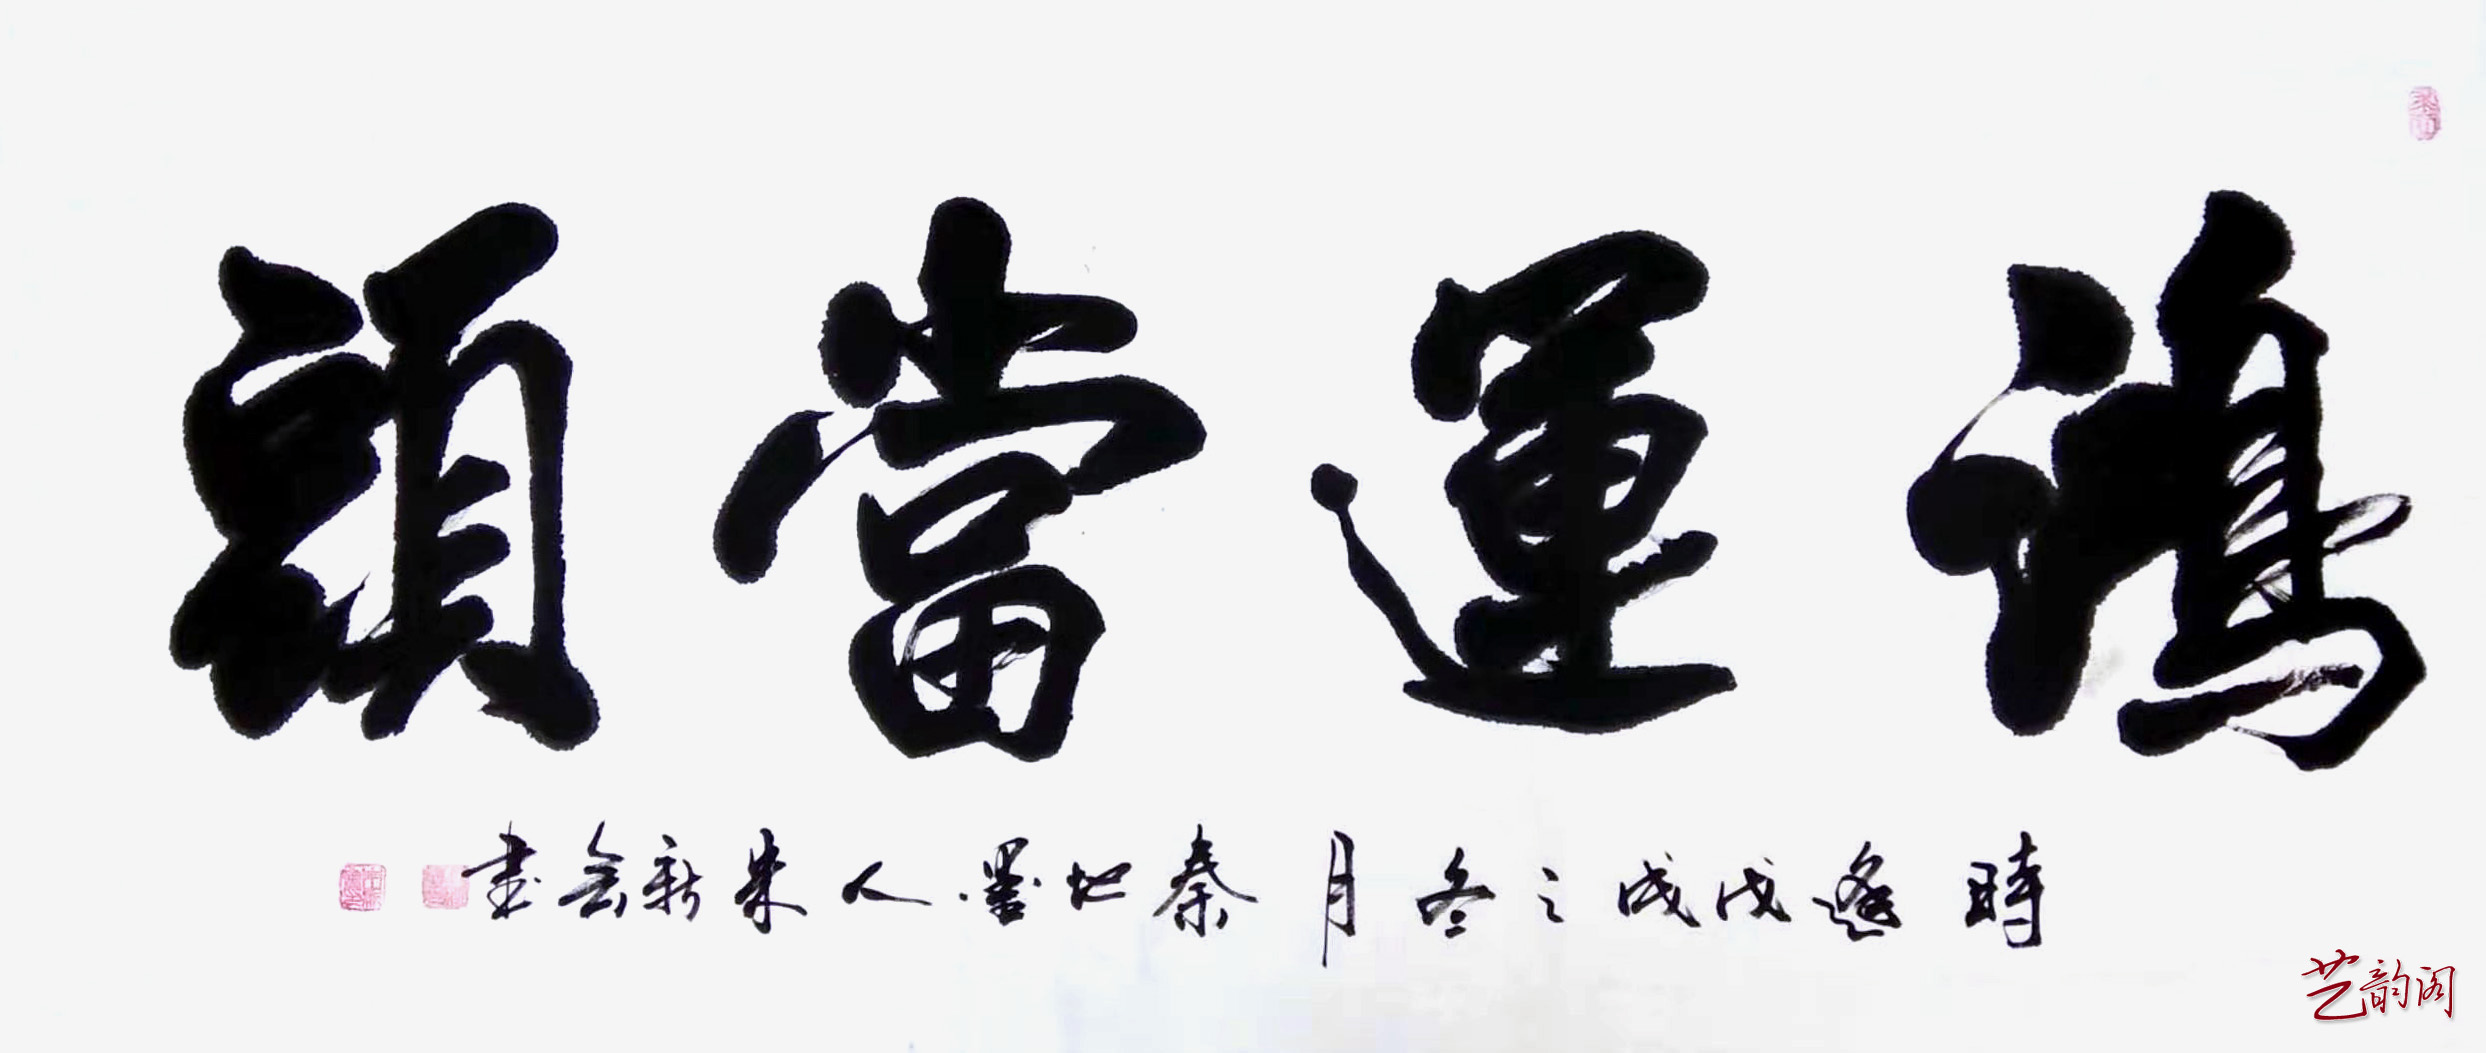 鴻運當頭
時逢戊戌之冬月秦地墨人朱新会書
艺韵阁